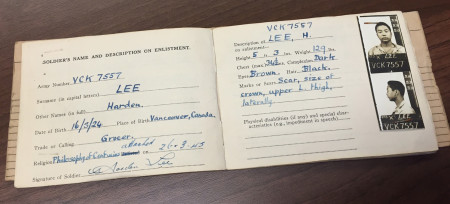 SOLDIER'S NAME AND DESCRIPTION ON ENLISTMENT.
Army Number VCK 7557
Surname (in capital letters) LEE
Other Names (in full) Harden.
Date of Birth 16/3/24 Place of Birth Vancouver, Canada.
Trade or Calling Grocer.
Religion Philosophy of Confucius 26.3.45
Signature of Soldier Lee
VCK 7557
Description of LEE, H.
on enlistment—
Height 5 ft. 3 ins. Weight 129 lbs.
Chest (max.) Complexion Dark
Eyes Brown. Hair Black.
Marks or Scars Scar, size of
crown, upper L. thigh,
laterally
Physical disabilities (if any) and special char-
acteristics (e.g., impediment in speech)
H. LEE
VCK 7557
H LEE
VCK7557